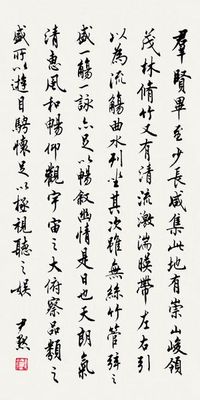 羣賢畢至少長咸集此地有崇山峻領
茂林脩竹又有清流激湍暎帶左右引
以為流觴曲水列坐其次雖無絲竹管弦之
盛一觴一詠亦足以暢叙幽情是日也天朗氣
清惠風和暢仰觀宇宙之大俯察品類之
盛所以遊目騁懷足以極視聽之娛
尹默